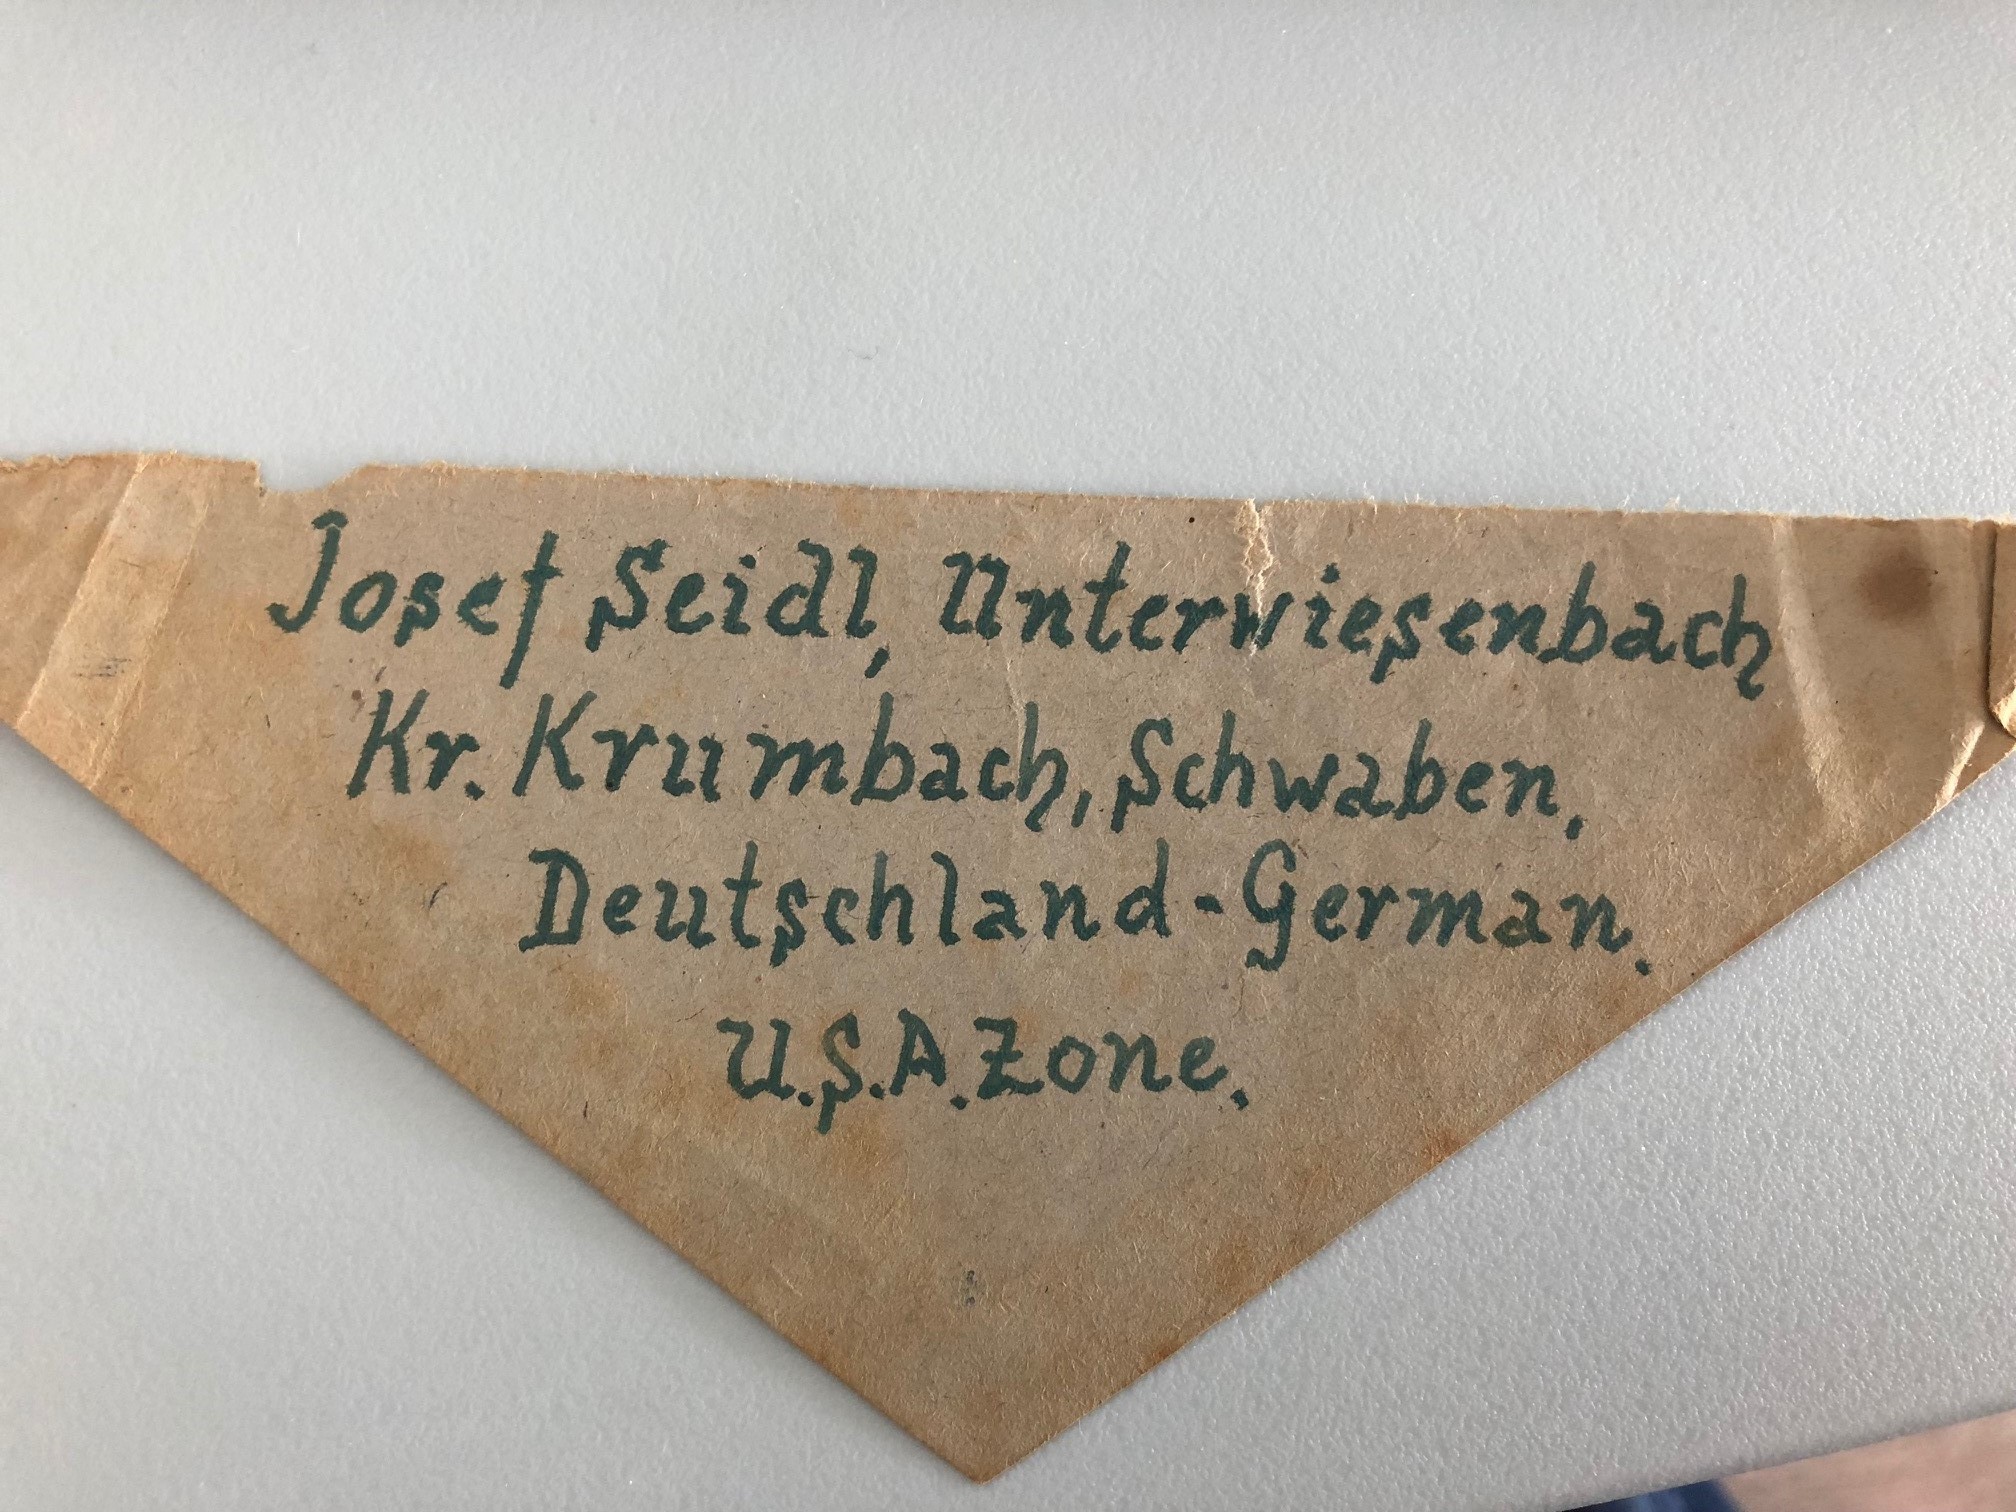 Josef Seidl, Unterwiesenbach
Kr. Krumbach, Schwaben,
Deutschland-German.
U.S.A. Zone.